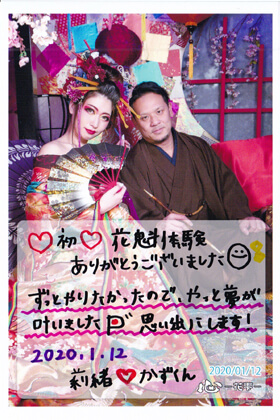 ♡初♡ 花魁体験
ありがとうございました
ずっとやりたかったので、やっと夢が
叶いました 思い出にします!
2020.1.12
莉緒♡かずくん
2020/01/12